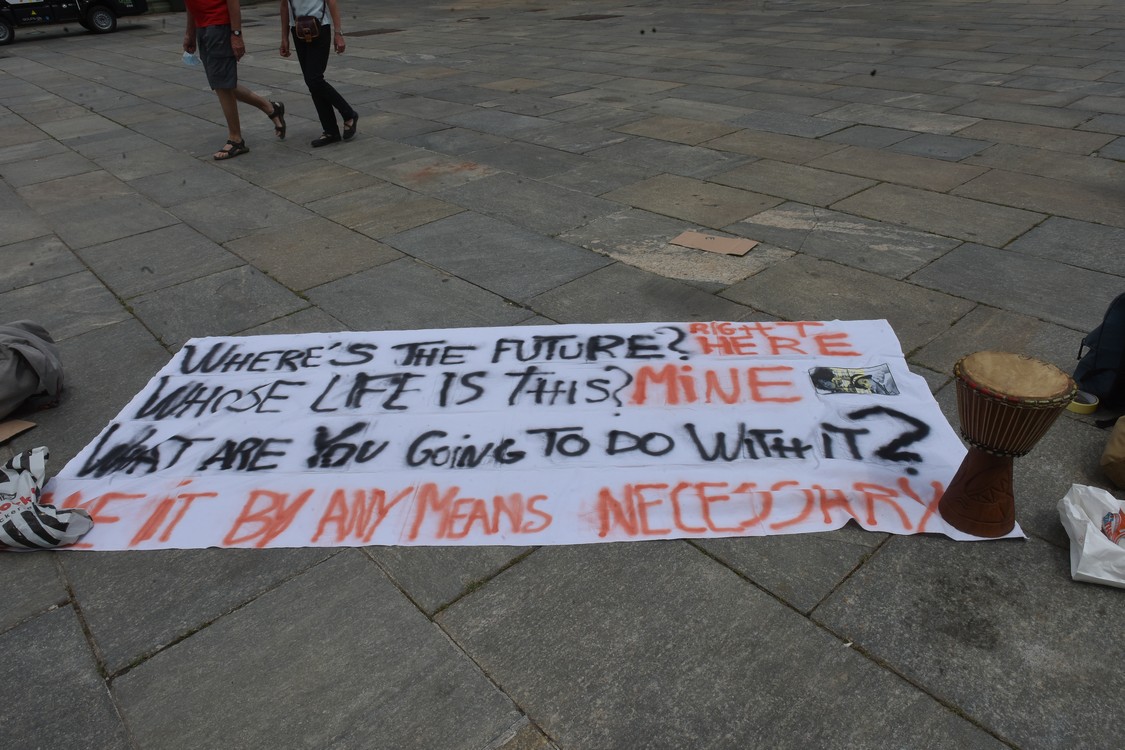 WHERE'S THE FUTURE? RIGHT HERE
WHOSE LIFE IS THIS? MINE
WHAT ARE YOU GOING TO DO WITH IT?
IT BY ANY MEANS NECESSARY